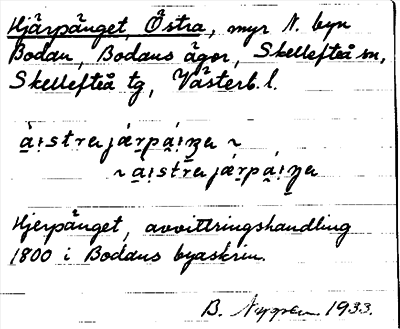 Hjärpänget, Östra, myr N. byn
Bodan, Bodans ägor, Skellefteå sn,
Skellefteå tg, Västerb. l.
Hjerpänget, avvittringshandling
1800 i Bodans byaskrin.
B. Nygren 1933.